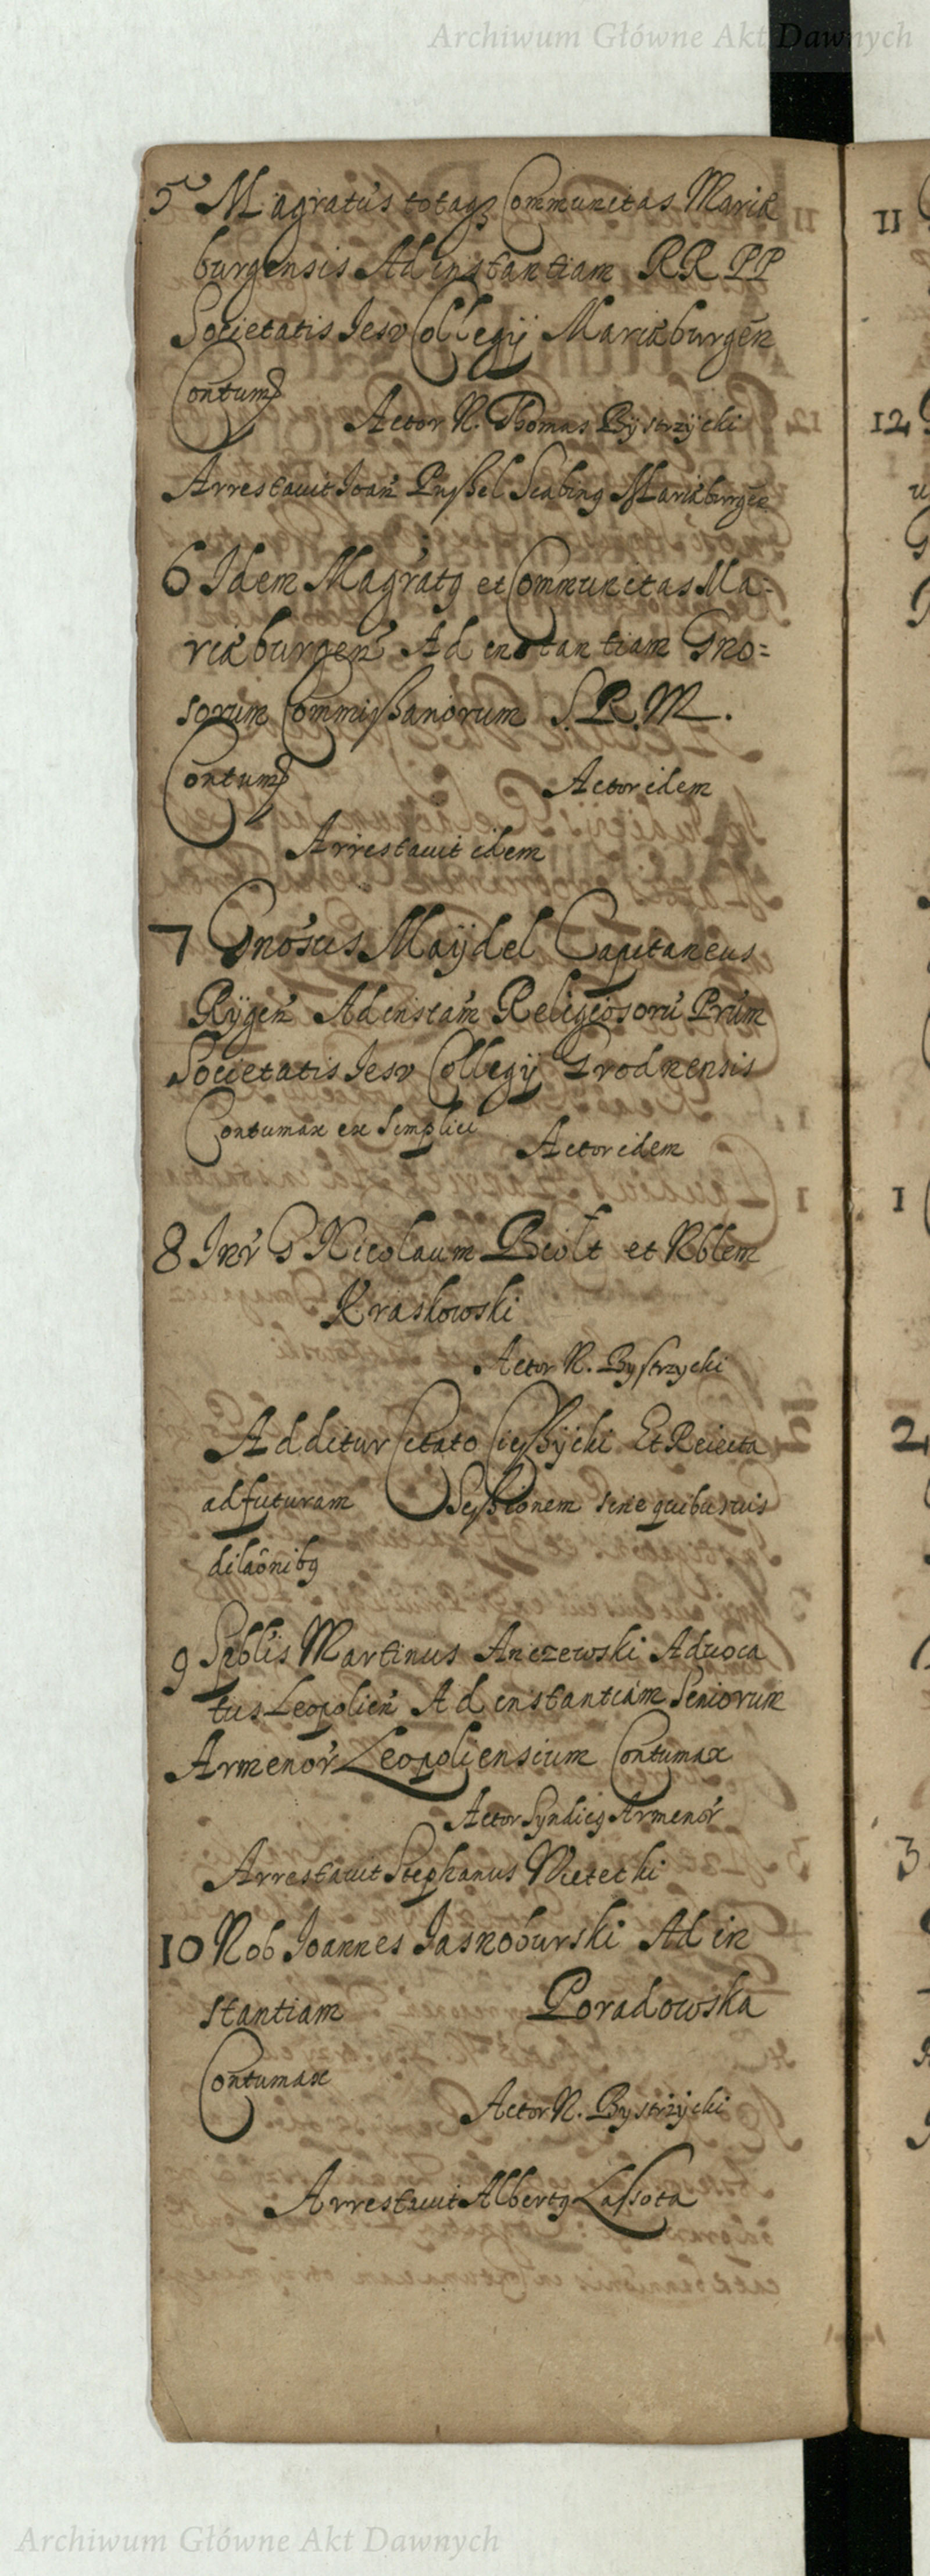 Archiwum Główne Akt Dawnych
5 Magratus totaqз Communitas Mariæ
burgensis Ad instantiam RR PP
Societatis Iesv Collegij Mariæburgen
Contum
Actor N. Thomas Bystrzÿcki
Arrestauit Ioan Pußel Scabinꝯ Mariæburgen
6 Idem Magratꝯ et Communitas Ma-
riæburgen Ad instantiam Gno=
sorum Commißariorum S R M.
Contum
Actor idem
Arrestauit idem
7 Gnosus Maÿdel Capitaneus
Rÿgen Ad instam Religiosoru Prum
Societatis Iesv Collegij Grodnensis
Contumax ex Simplici
Actor idem
8 Inr G Nicolaum et Nblem
Kraskowski
Actor N. Bystrzycki
Additur Citato Cießÿcki Et Reiecta
ad futuram Seßionem sine quibusuis
dilaonibꝯ
9 Spblis Martinus Anczewski Aduoca
tus Leopolien Ad instantiam Seniorum
Armenor Leopoliensium Contumax
Actor Syndicꝯ Armenor
Arrestauit Stephanus Nietecki
10 Nob Ioannes Iasnoburski Ad in
stantiam Poradowska
Contumax
Actor N. Bystrzÿcki
Arrestauit Albertꝯ Lassota
11
12
1
2
3
Archiwum Główne Akt Dawnych